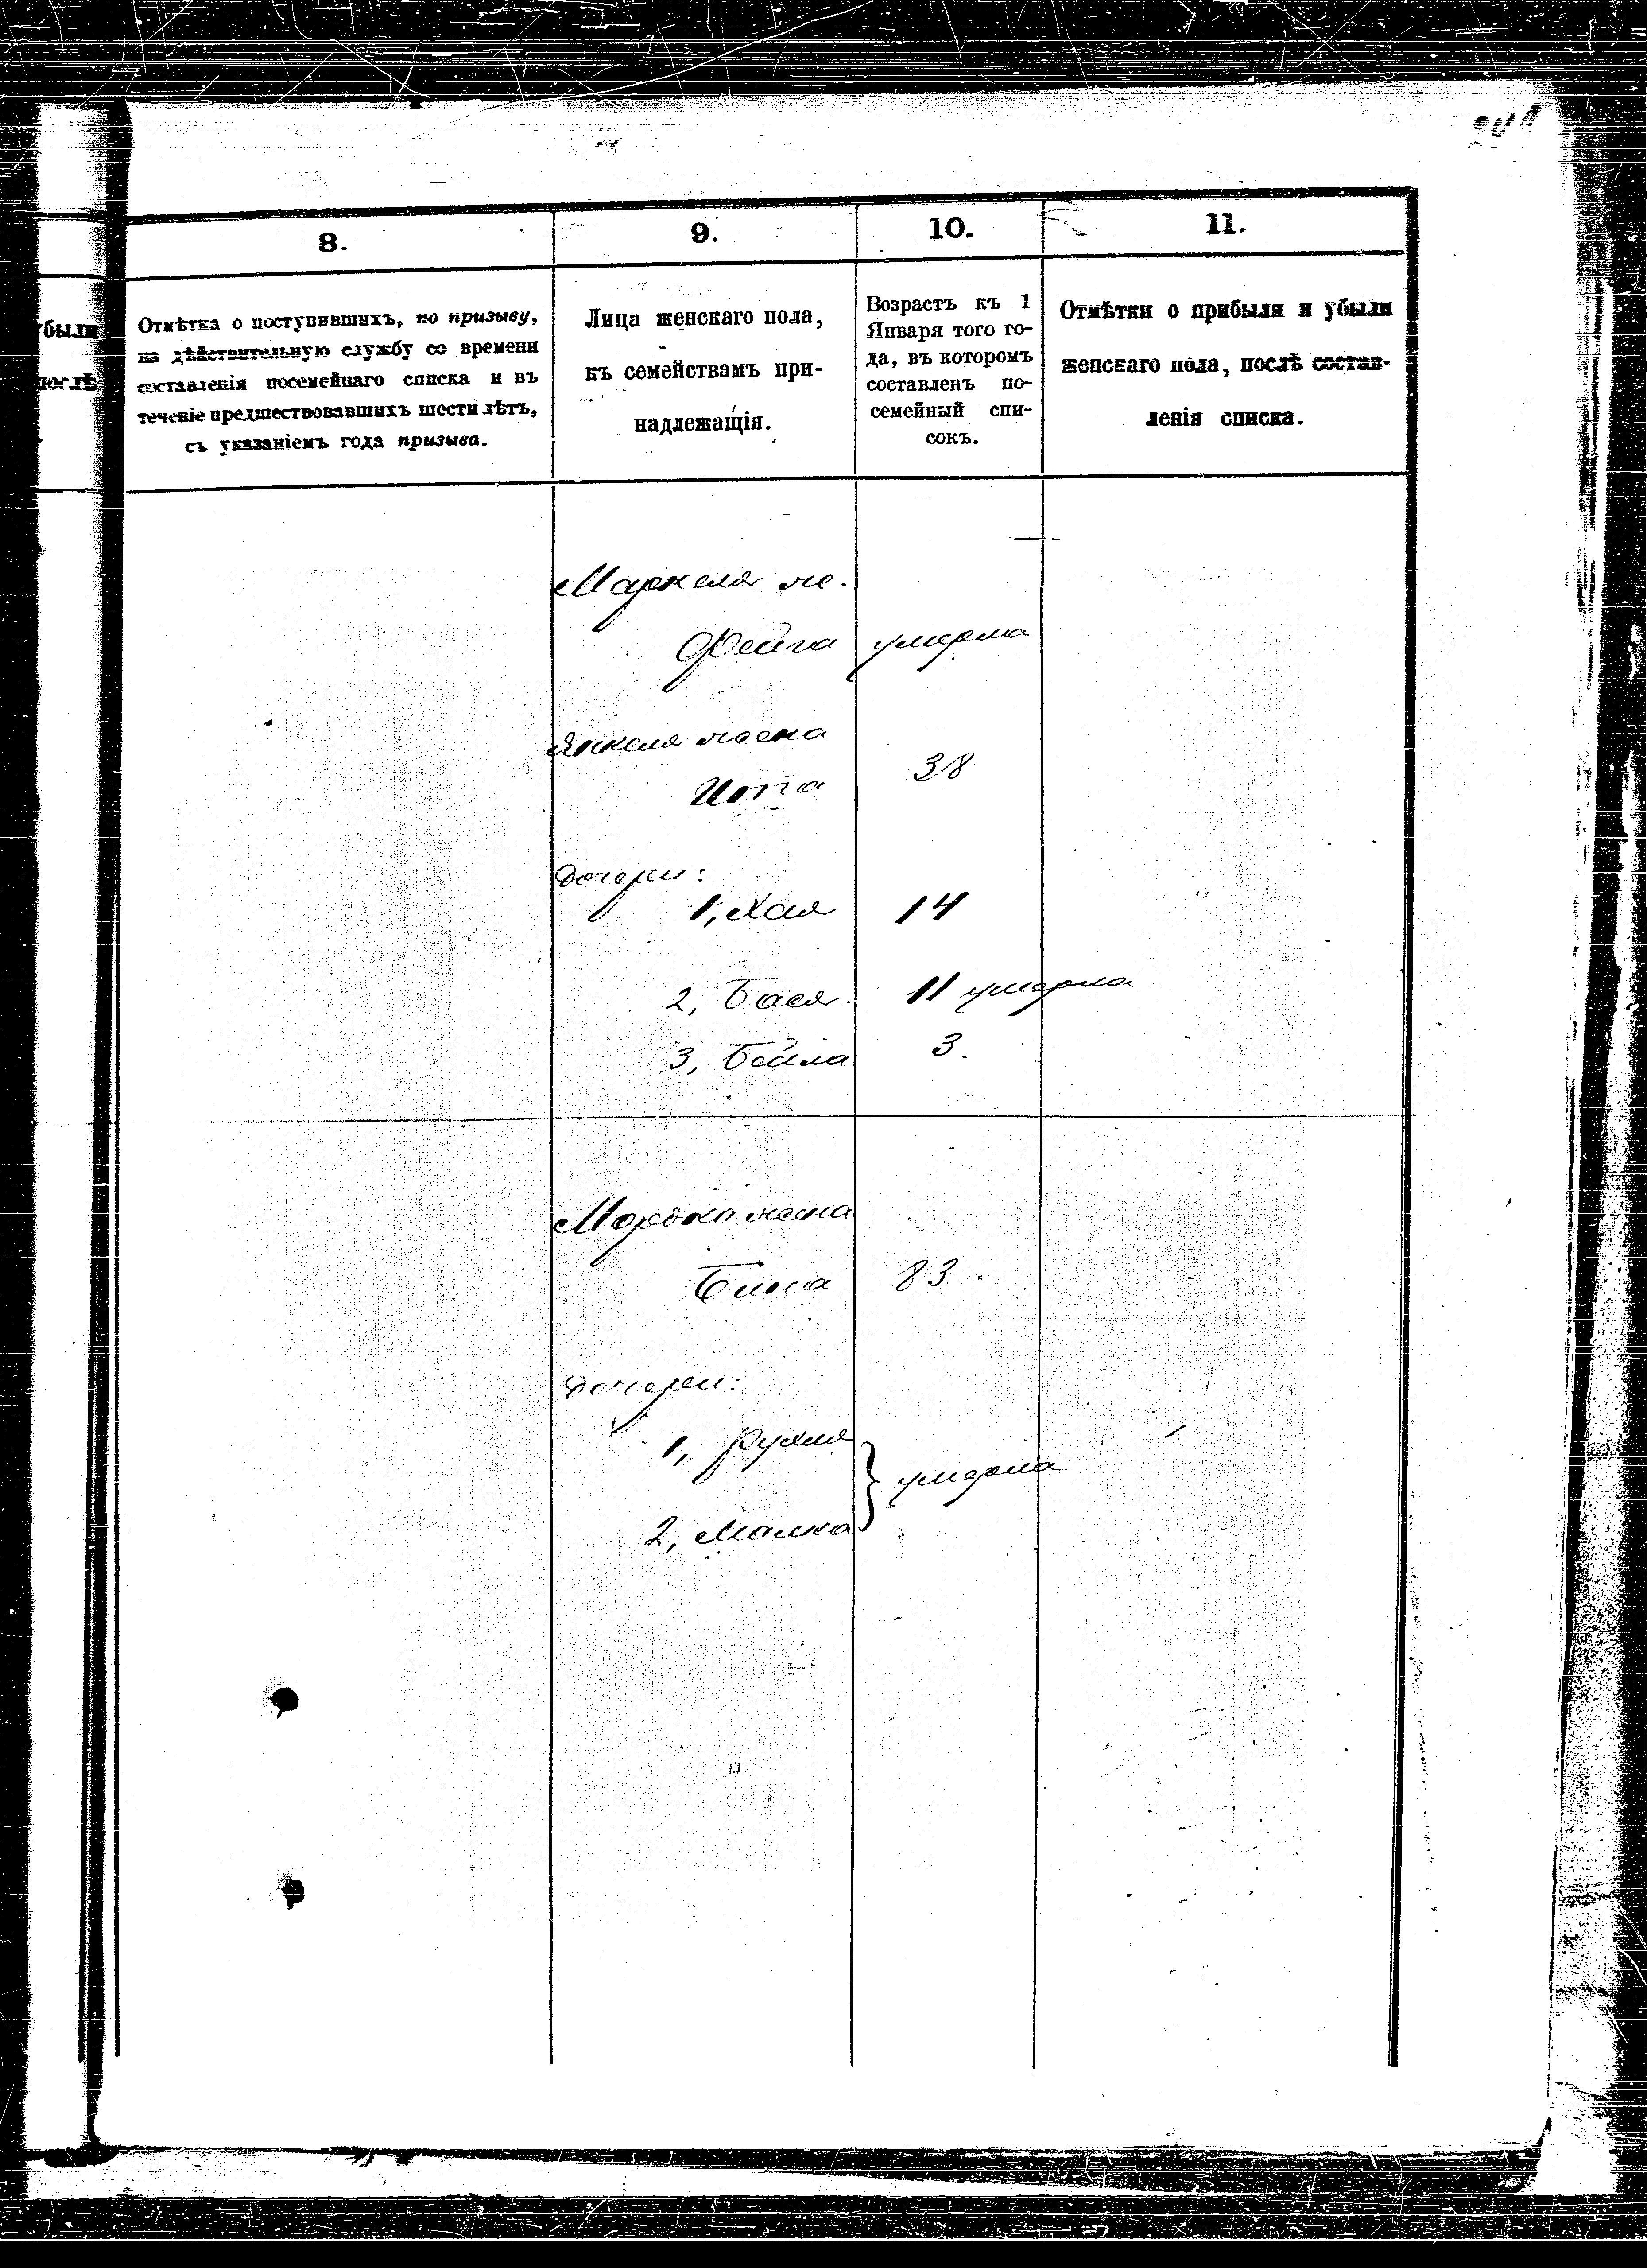 8.
9.
10.
11.
были
послѣ
Отмѣтка о поступившихъ, по призыву,
на дѣйствительную службу со времени
составленія посемейнаго списка и въ
теченіе предшествовавшихъ шести лѣтъ,
съ указаніемъ года призыва.
Лица женскаго пола,
къ семействамъ при-
надлежащія.
Возрастъ къ 1
Января того го-
да, въ которомъ
составленъ по-
семейный спи-
сокъ.
Отмѣтки о прибыли и убыли
женскаго пола, послѣ состав-
ленія списка.
же.
Фейга умерла
Янкеля жена
38
дочери:
1, Хая 14
2, Бася 11 умерла
3, Бейла 3.
Мордка жена
Бина 83.
дочери:
1, Рухля
умерла
2, Малка